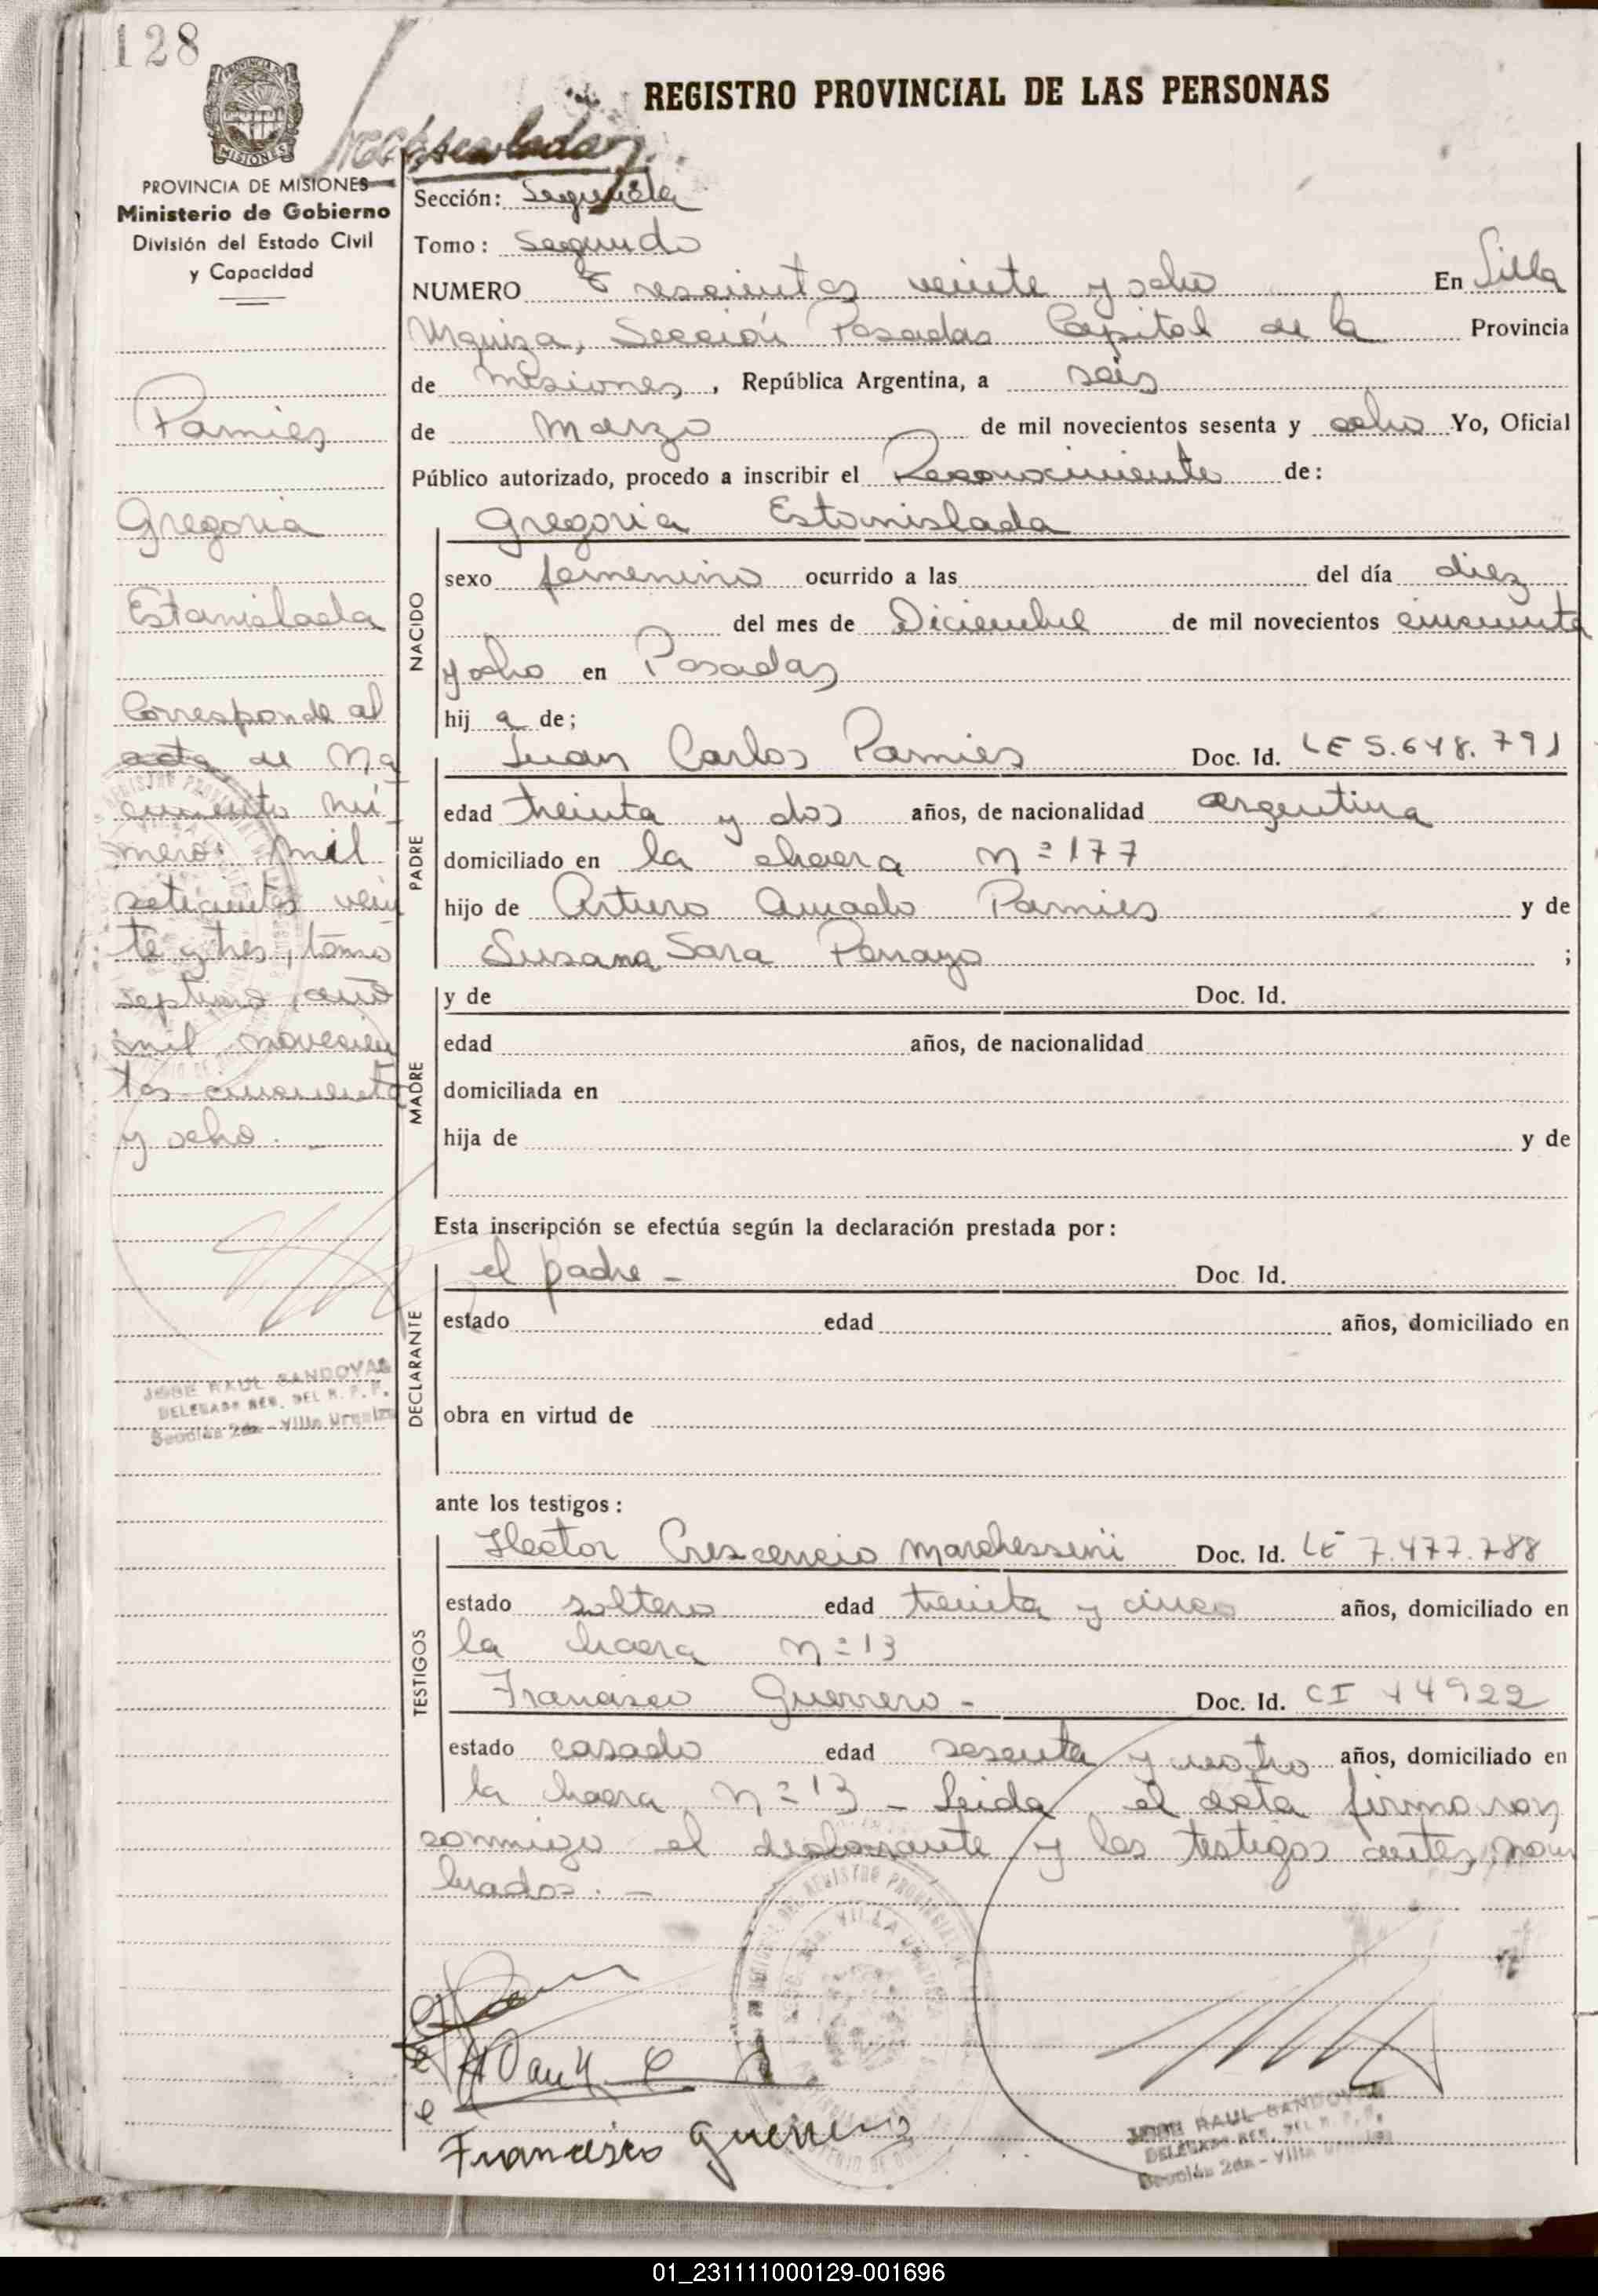 128
REGISTRO PROVINCIAL DE LAS PERSONAS
PROVINCIA DE MISIONES
MISIONES
PROVINCIA DE MISIONES
Ministerio de Gobierno
División del Estado Civil
y Capacidad
Sección: Segunda
Tomo: Segundo
NUMERO Trescientos veinte y ocho En Villa
Urquiza, Sección Posadas Capital de la Provincia
de Misiones, República Argentina, a seis
de marzo de mil novecientos sesenta y ocho Yo, Oficial
Público autorizado, procedo a inscribir el Reconocimiento de:
Pamies
Gregoria
Estanislada
Corresponde al
acta de Na
cimiento nú
mero: mil
setecientos vein
te y tres, tomo
septimo, año
mil novecien
tos cincuenta
y ocho.
JOSE RAUL SANDOVAL
DELEGADO REG. DEL R. P. P.
Sección 2da - Villa Urquiza
NACIDO
Gregoria Estanislada
sexo femenino ocurrido a las del día diez
del mes de Diciembre de mil novecientos cincuenta
y ocho en Posadas
hij a de;
PADRE
Juan Carlos Pamies Doc. Id. LE 5.648.791
edad treinta y dos años, de nacionalidad argentina
domiciliado en la chacra nº 177
hijo de Arturo Amado Pamies y de
Susana Sara ;
MADRE
y de Doc. Id.
edad años, de nacionalidad
domiciliada en
hija de y de
Esta inscripción se efectúa según la declaración prestada por:
DECLARANTE
el padre - Doc. Id.
estado edad años, domiciliado en
obra en virtud de
ante los testigos:
TESTIGOS
Hector Crescencio Marchessini Doc. Id. LE 7.477.788
estado soltero edad treinta y cinco años, domiciliado en
la chacra nº 13
Francisco Guerrero - Doc. Id. CI 44922
estado casado edad sesenta y cuatro años, domiciliado en
la chacra nº 13 - Leida el acta firmaron
conmigo el declarante y los testigos antes nom
brados. -
VILLA URQUIZA
Francisco Guerrero
JOSE RAUL SANDOVAL
DELEGADO REG. DEL R. P. P.
Sección 2da - Villa Urquiza
01_231111000129-001696